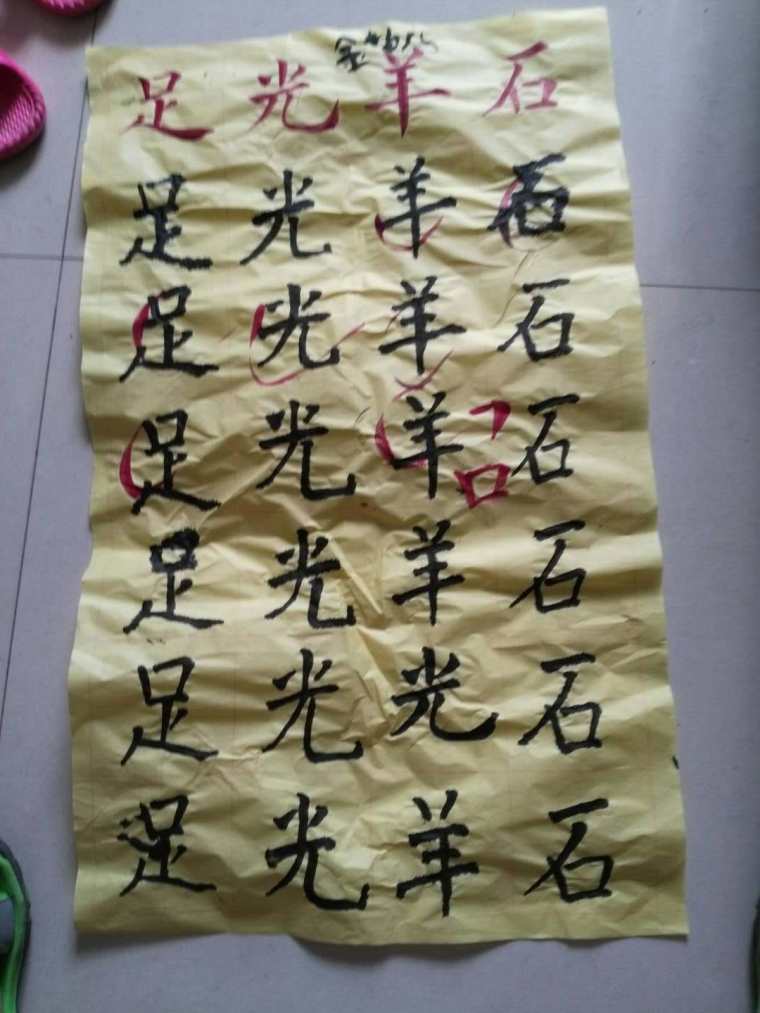 足 光 羊 石
足 光 羊 石
足 光 羊 石
足 光 羊 口 石
足 光 羊 石
足 光 光 石
足 光 羊 石